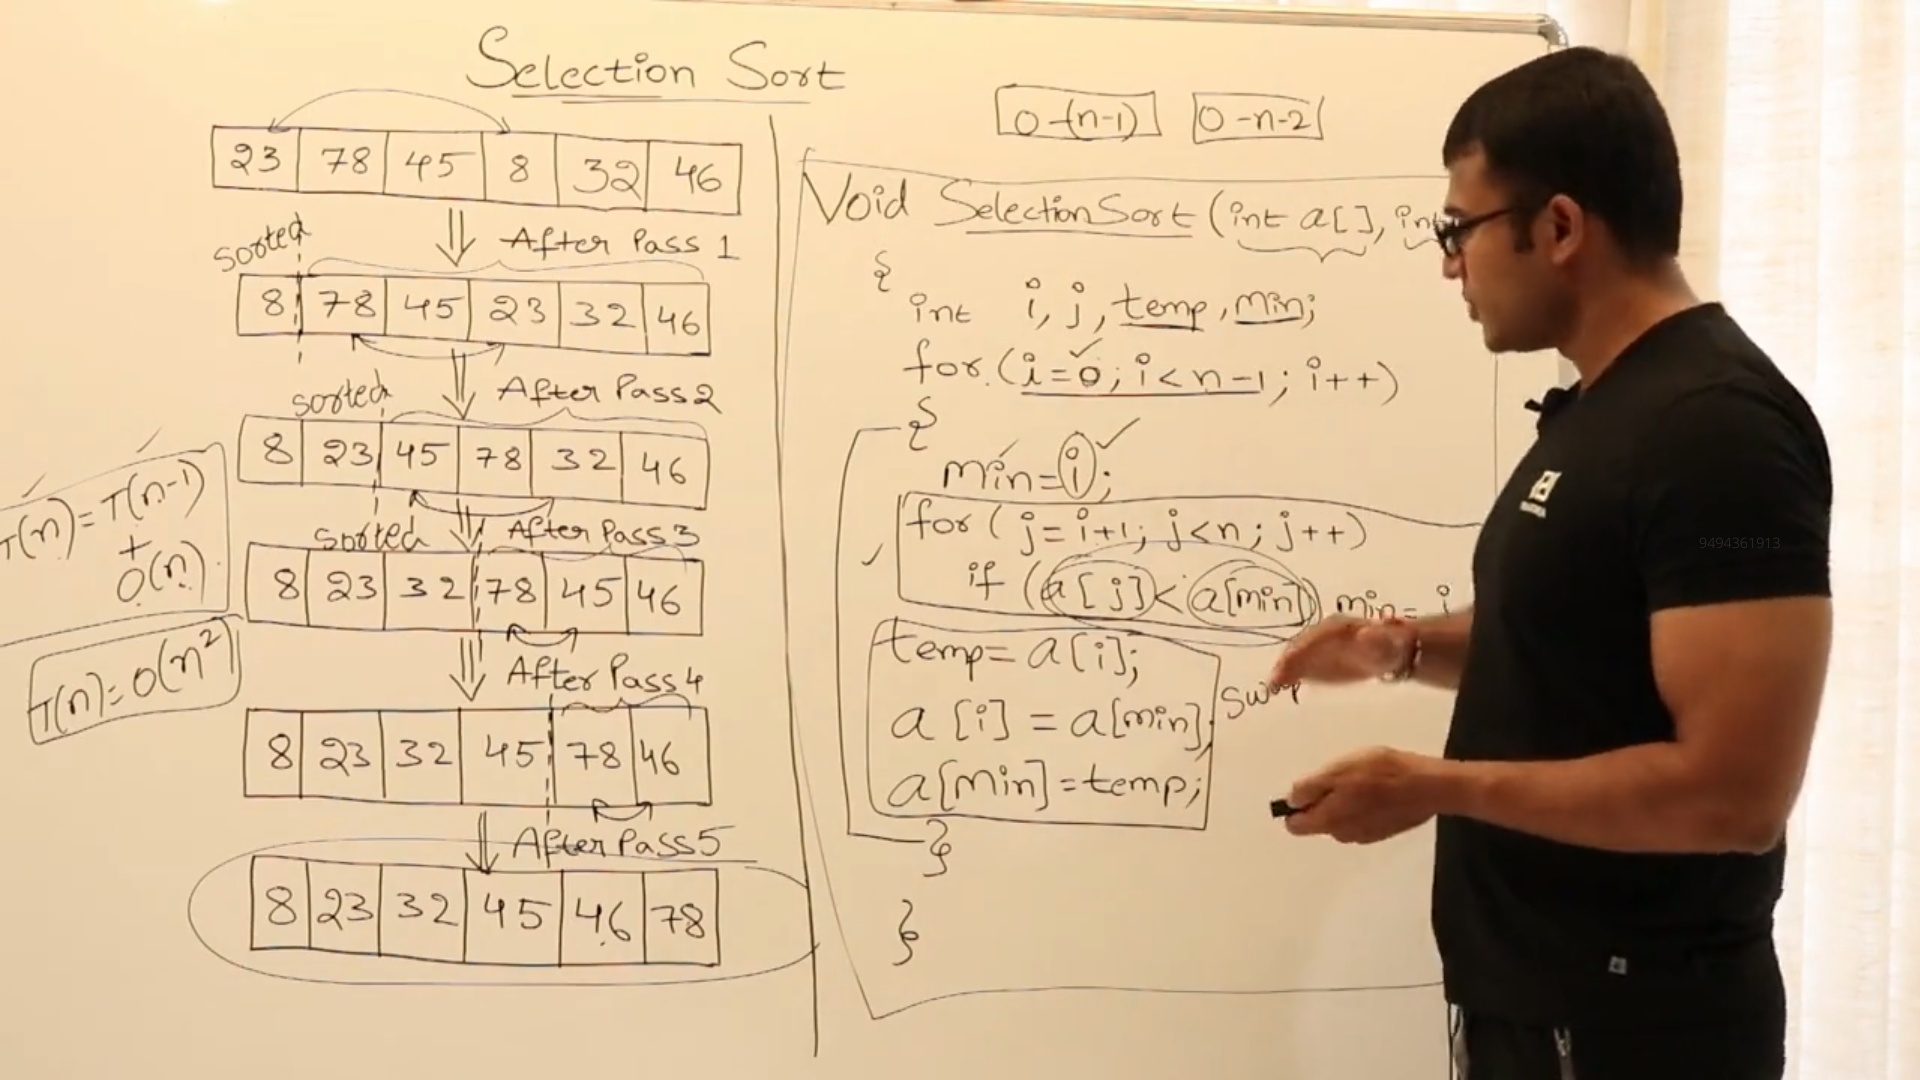 Selection Sort
23 78 45 8 32 46
sorted
After Pass 1
8 78 45 23 32 46
sorted
After Pass 2
8 23 45 78 32 46
sorted
After Pass 3
8 23 32 78 45 46
After Pass 4
8 23 32 45 78 46
After Pass 5
8 23 32 45 46 78
T(n) = T(n-1)
+
O(n)
T(n) = O(n²)
0-(n-1) 0-n-2
Void SelectionSort (int a[], int
{
int i, j, temp, min;
for (i=0; i<n-1; i++)
{
min=i;
for (j=i+1; j<n; j++)
if (a[j]<a[min]) min=
temp= a[i];
a[i] = a[min];
a[min]=temp;
swap
}
}
9494361913